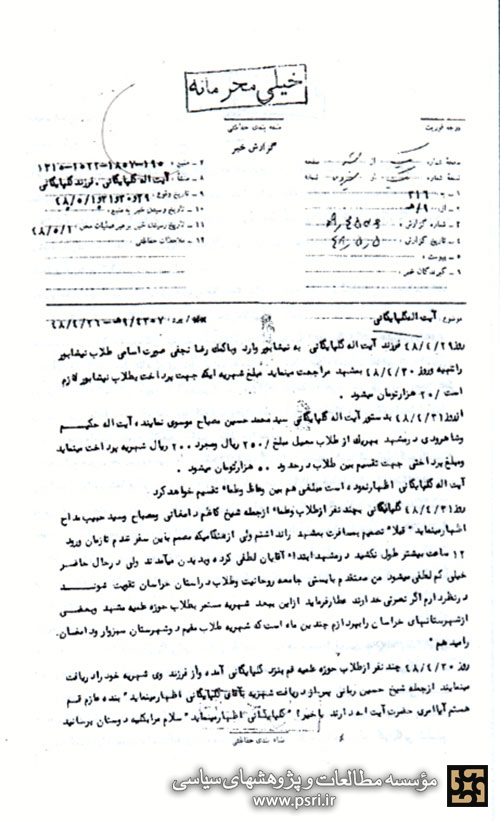 خیلی محرمانه
درجه فوریت
طبقه بندی حفاظتی
گزارش خبر
صفحه شماره از صفحه
نسخه شماره از نسخه
۱ ـ به ۳۱۶
۲ ـ از ۹/هـ
۳ ـ شماره گزارش
۴ ـ تاریخ گزارش
۵ ـ پیوست :
۶ ـ گیرندگان خبر
۷ ـ منبع : ۱۹۵-۱۸۰۷-۱۵۲۲-۱۳۱۵
۸ ـ منشأ : آیت اله گلپایگانی . فرزند گلپایگانی
۹ ـ تاریخ وقوع :
۱۰ ـ تاریخ رسیدن خبر به منبع :
۱۱ ـ تاریخ رسیدن خبر برهبر عملیات محل : ۴۸/۵/۲
۱۲ ـ ملاحظات حفاظتی
موضوع : آیت اله گلپایگانی
۹/۴۳۰۷هـ-۴۸/۴/۲۶
روز ۴۸/۴/۲۹ فرزند آیت اله گلپایگانی به نیشابور وارد وباکمک رضا نجفی صورت اسامی طلاب نیشابور
را تهیه وروز ۴۸/۴/۳۰ بمشهد مراجعت مینماید مبلغ شهریه ایکه جهت پرداخت بطلاب نیشابور لازم
است /۲۰ هزارتومان میشود .
ازروز ۴۸/۴/۳۱ بدستور آیت اله گلپایگانی سید محمد حسین مصباح موسوی نماینده آیت اله حکیم
وشاهرودی درمشهد بهریک از طلاب معیل مبلغ /۲۵۰ ریال ومجرد ۲۰۰ ریال شهریه پرداخت مینماید
ومبلغ پرداختی جهت تقسیم بین طلاب درحدود ۵۰ هزارتومان میشود .
آیت اله گلپایگانی اظهارنموده است مبلغی هم بین وعاظ وعلماء تقسیم خواهد کرد
روز ۴۸/۴/۳۱ گلپایگانی بچند نفر ازطلاب وعلماء ازجمله شیخ کاظم دامغانی ومصباح وسید حبیب مداح
اظهارمینماید " قبلا" تصمیم بمسافرت بمشهد را نداشتم ولی ازهنگامیکه مصمم باین سفر شدم تازمان ورود
۱۲ ساعت بیشتر طول نکشید . درمشهد ابتداء آقایان لطفی کرده وبدیدن میآمدند ولی درحال حاضر
خیلی کم لطفی میشود من معتقدم بایستی جامعه روحانیت وطلاب دراستان خراسان تقویت شوند
درنظردارم اگر نصرتی خداوند عطارفرماید ازاین ببعد شهریه مستمر بطلاب حوزه علمیه مشهد وبعضی
ازشهرستانهای خراسان رابپردازم چندین ماه است که شهریه طلاب مقیم دوشهرستان سبزوار ودامغان.
رامیدهم "
روز ۴۸/۴/۳۰ چند نفر ازطلاب حوزه علمیه قم بنزد گلپایگانی آمده واز فرزند وی شهریه خود را دریافت
مینمایند ازجمله شیخ حسین زمانی پس از دریافت شهریه بآقای گلپایگانی اظهارمینماید " بنده عازم قم
هستم آیاامری حضرت آیت اله دارند یاخیر؟ " گلپایگانی اظهارمینماید " سلام مرابکلیه دوستان برسانید
طبقه بندی حفاظتی
مؤسسه مطالعات و پژوهشهای سیاسی
www.psri.ir